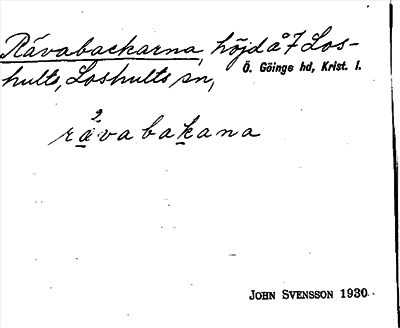 Rävabackarna, höjd å 7 Los-
hults, Loshults sn,
Ö. Göinge hd, Krist. l.
2
rävabakana
John Svensson 1930.